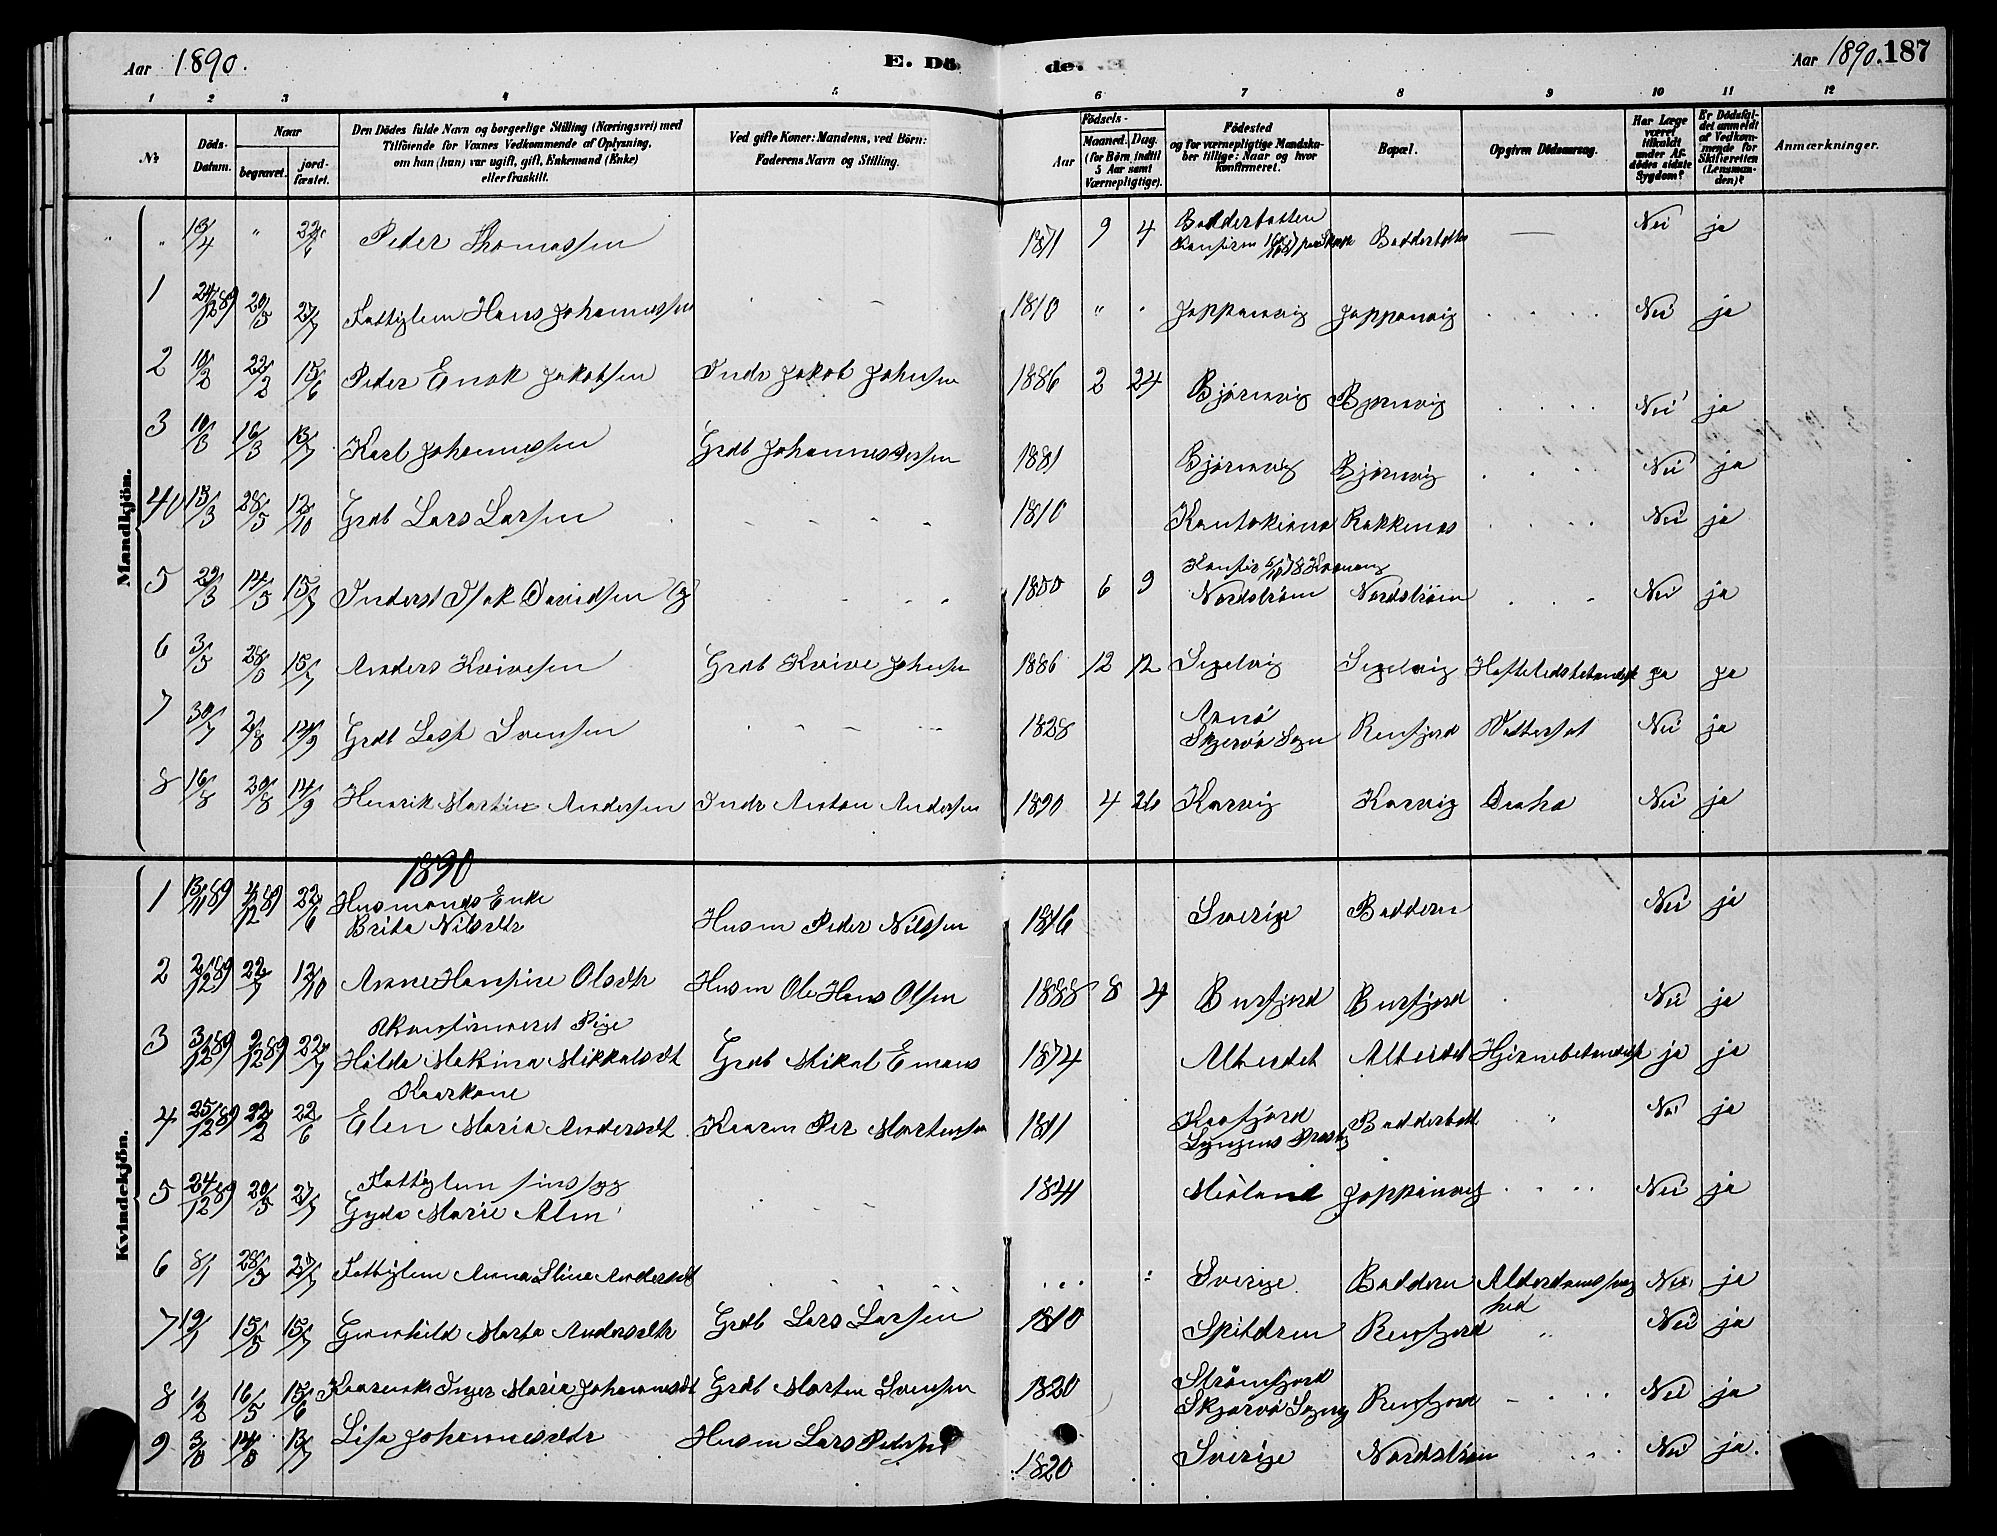 Aar 1890.
E. Dö de.
Aar 1890. 187
1 2 3 4 5 6 7 8 9 10 11 12
No
Döds-Datum.
Naar
begravet.
jord-fæstet.
Den Dödes fulde Navn og borgerlige Stilling (Næringsvei) med
Tilföiende for Voxnes Vedkommende af Oplysning,
om han (hun) var ugift, gift, Enkemand (Enke)
eller fraskilt.
Ved gifte Koner: Mandens, ved Börn:
Faderens Navn og Stilling.
Födsels-
Aar
Maaned. Dag.
(for Börn indtil
5 Aar samt
Værnepligtige).
Födested
og for værnepligtige Mandska-
ber tillige: Naar og hvor
konfirmeret.
Bopæl.
Opgiven Dödsaarsag.
Har Læge
været
tilkaldt
under Af-
dödes sidste
Sygdom?
Er Dödsfal-
det anmeldt
af Vedkom-
mende for
Skifteretten
(Lensman-
den)?
Anmærkninger.
Mandkjön.
" 13/4 " 22/6 Peder Thomassen 1871 9 4 Badderbotten Badderbotten — Nei ja
1 24/12 89 20/5 27/7 Fattiglem Hans Johannessen 1810 " " Joppanvig Joppanvig Nei ja
2 10/2 22/2 15/6 Peder Enok Jakobsen Indr Jakob Johnsen 1886 2 24 Bjørnvig Bjørnvig Nei ja
3 10/3 16/3 13/7 Karl Johannessen Grdb Johannes 1881 Bjørnvig Bjørnvig Nei ja
40 13/3 28/5 12/10 Grdb Lars Larsen 1810 Kautokeino Rakkenes Nei ja
5 22/3 14/5 15/7 Inderst Isak Davidsen Ug 1850 6 9 Nordstrøm Nordstrøm Nei ja
6 3/5 28/8 15/7 Anders Kvivesen Grdb Kvive Johnsen 1886 12 12 Segelvig Segelvig Hofteledsbetændelse ja ja
7 30/7 2/8 14/9 Grdb Svensen 1828 Arnø
Skjervø Sogn Rensfjord Vattersot Nei ja
8 16/8 30/8 14/9 Henrik Martin Andersen Indr Anton Andersen 1890 4 26 Korvig Korvig Nei ja
1890
Kvindekjön.
1 13/11 89 4/12 89 22/6 Husmands Enke
Brita Nilsdtr Husm Peder Nilssen 1816 Sverige Baddern Nei ja
2 2/12 89 22/7 12/10 Anne Hansine Olsdtr Husm Ole Hans Olsen 1888 8 4 Bursfjord Bursfjord Nei ja
3 3/12 89 9/12 89 22/7 Ukonfirmeret Pige
Hilda Makina Mikkalsdt Grdb Mikal Emans 1874 Alteidet Alteidet Hjernebetændelse ja ja
4 25/12 89 22/2 22/6 Kaarkone
Elen Maria Andersdt Kaarm Per Mortensen 1811 Kaafjord
Lyngens Præstg Badderbott " Nei ja
5 24/12 89 20/5 27/7 Fattiglem sinssyg
Gyda Marie Alm 1844 Joppanvig Nei ja
6 8/1 28/5 27/7 Fattiglem Anna Stine Andersdt Sverige Baddern Alderdomssvaghed Nei ja
7 19/1 15/5 15/7 Gunhild Marta Andersdtr Grdb Lars Larsen 1810 Spildren Rensfjord " Nei ja
8 1/2 16/5 15/6 Inger Maria Johannesdt Grdb Morten Svensen 1820 Strømfjord
Skjervø Sogn Rensfjord Nei ja
9 14/8 13/7 Lisa Johannesdtr Husm Lars Pedersen 1820 Sverige Nordstrøm Nei ja.